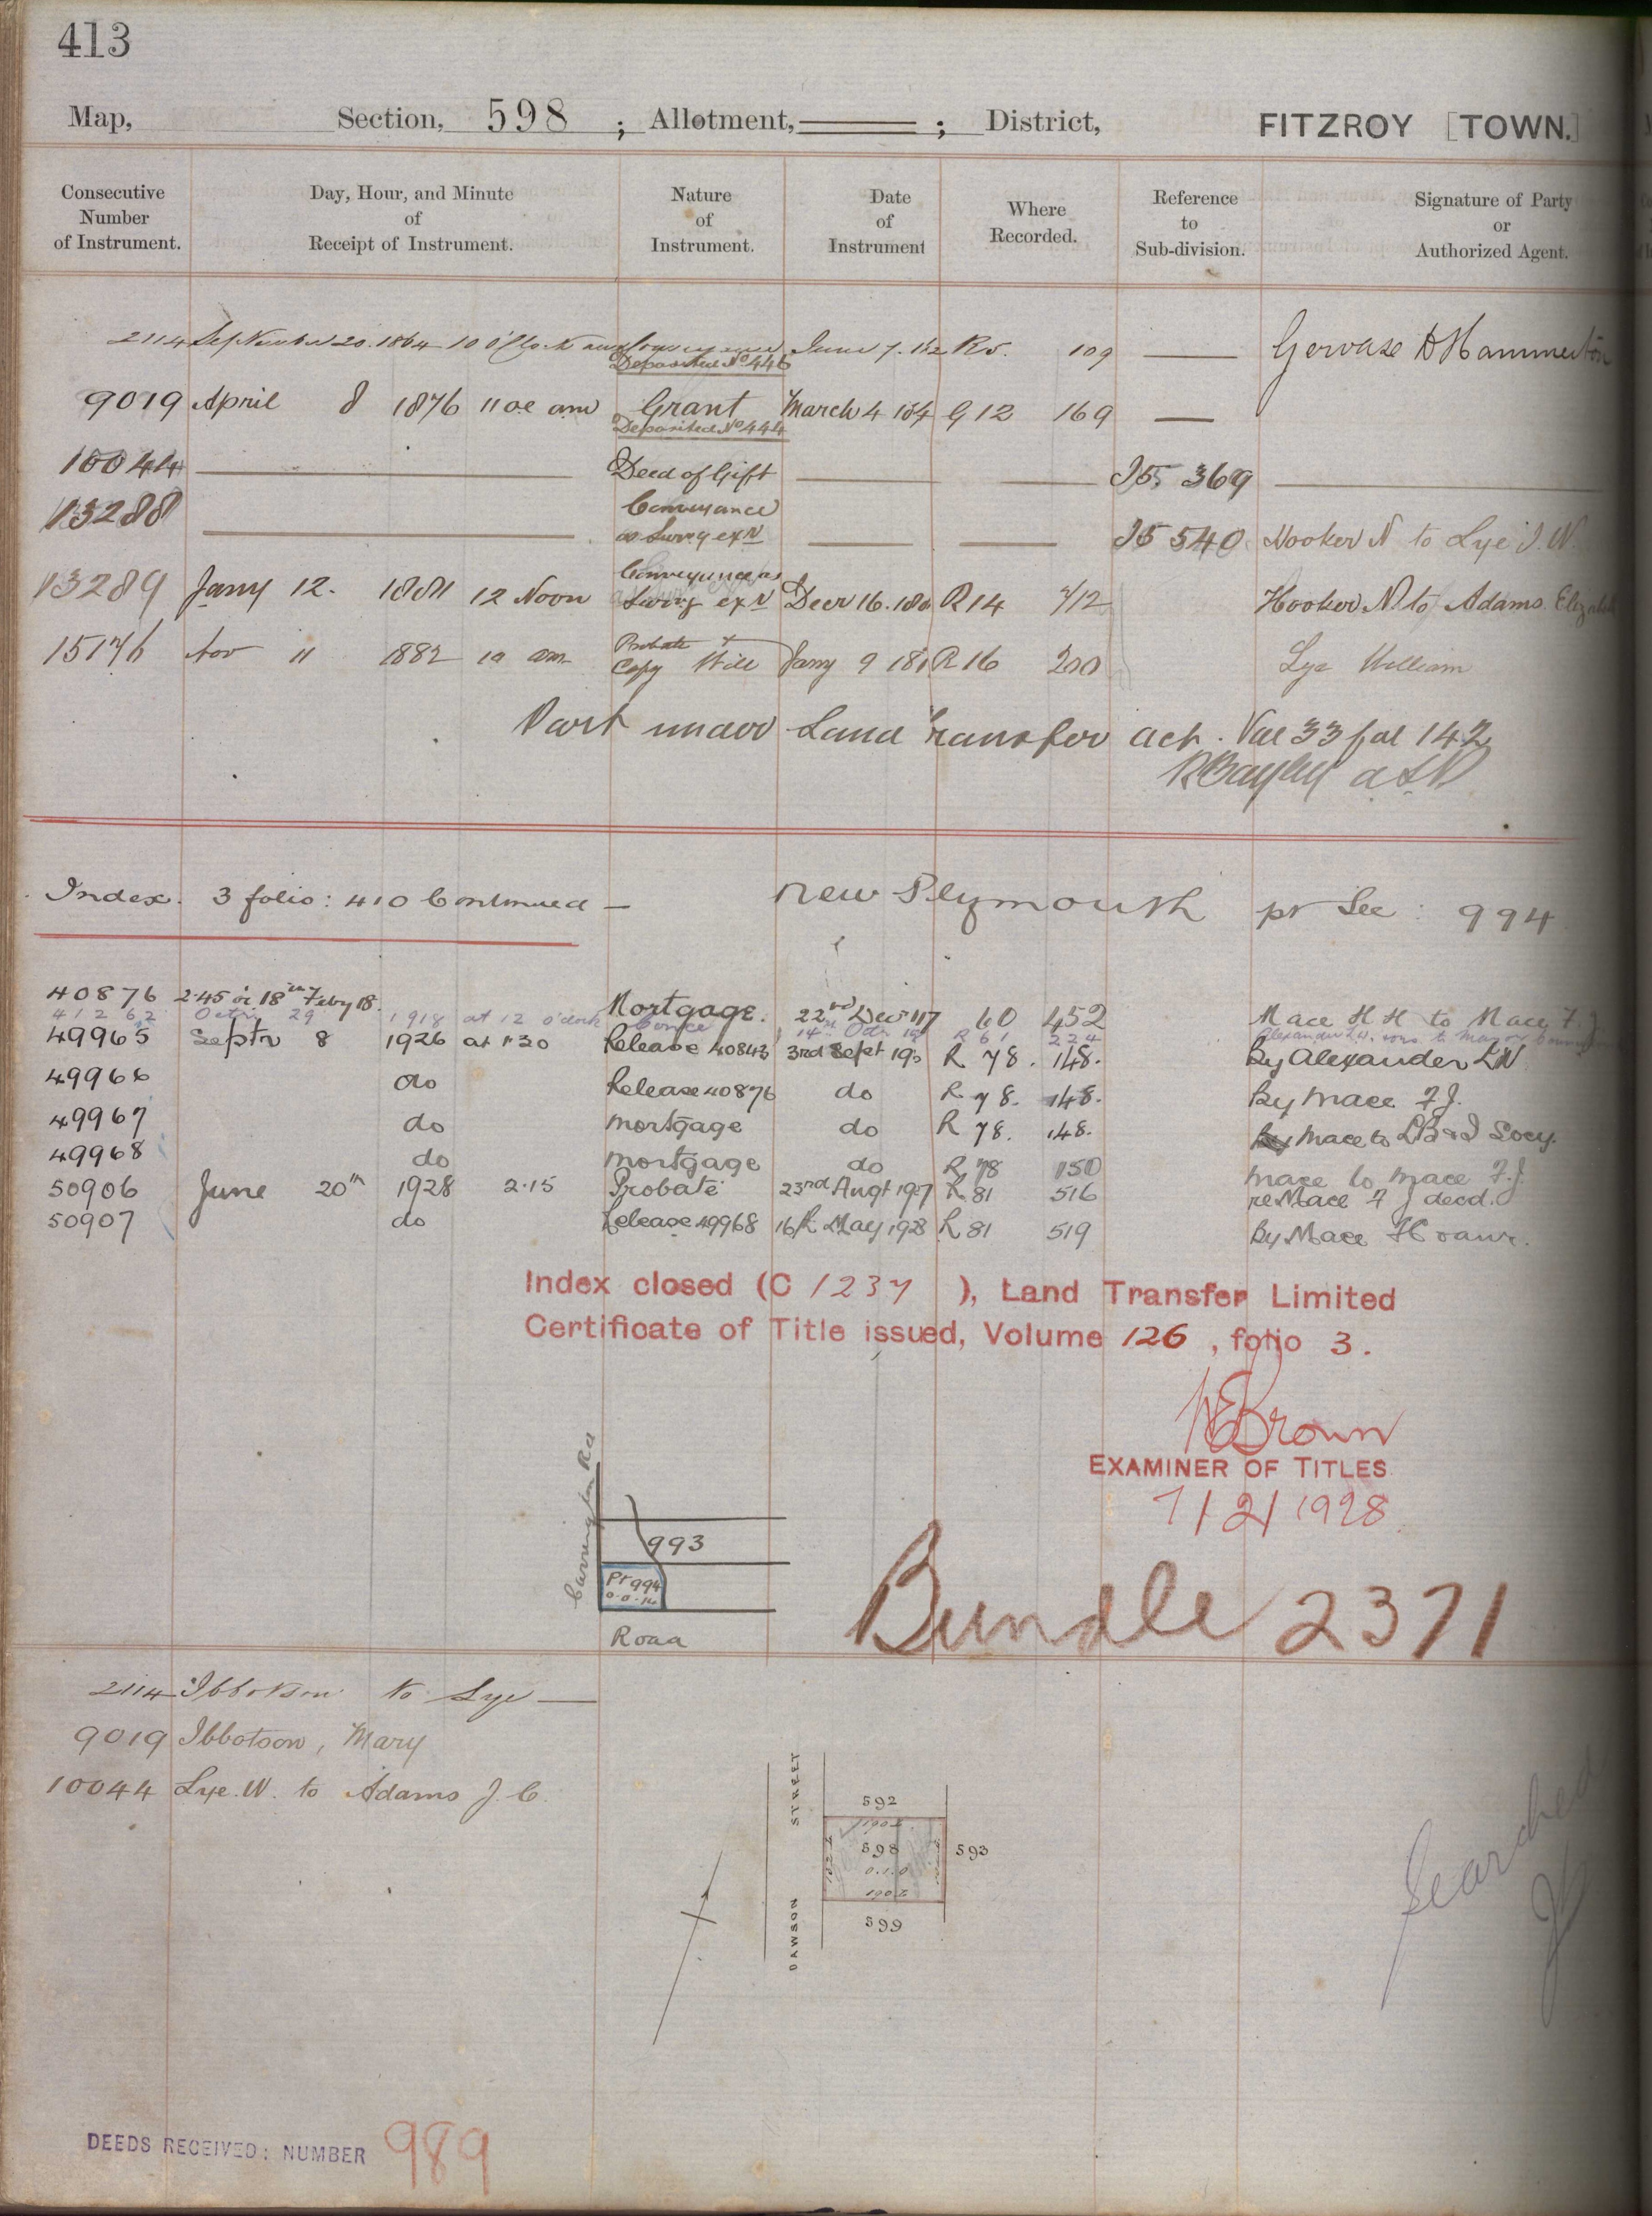 413
Map, Section, 598 ; Allotment, ——— ; District, FITZROY [TOWN.]
Consecutive Number of Instrument.
Day, Hour, and Minute of Receipt of Instrument.
Nature of Instrument.
Date of Instrument
Where Recorded.
Reference to Sub-division.
Signature of Party or Authorized Agent.
2114 September 20. 1864 10 o'Clock June 7. R5. 109 — Gervase D Hammerton
Deposited No 445
9019 April 8 1876 11 oc am Grant March 4 G 12 169 —
Deposited No 444
10044 — Deed of Gift — — I5, 369 —
13288 — Conveyance as Survg exr — — I5 540 Hooker N to Lye J. W.
13289 Jany 12. 1881 12 Noon Conveyance as Survg exr Decr 16. 180 R14 712 Hooker. N. to Adams.
15176 Nov 11 1882 10 am Probate + Copy Will Jany 9 181 R16 200 Lye William
Part under Land Transfer act. Vol 33 fol 142
R Bayley
Index. 3 folio: 410 Continued — New Plymouth pt Sec: 994
40876 2.45 18th Feby 18. Mortgage. 22nd Decr 117 60 452 Mace H H to Mace F. J.
41262 Octr 29 1918 at 12 o'clock R 61 224
49965 Septr 8 1926 at 1.30 Release 40843 3rd Sept 19 R 78. 148. By Alexander LW
49966 do Release 40876 do R 78. 148. By Mace F J.
49967 do mortgage do R 78. 148. Mace to Socy.
49968 do mortgage do R 78 150 Mace to Mace F. J.
50906 June 20th 1928 2.15 Probate 23rd Augt 1927 R 81 516 re Mace F J decd.
50907 do Release 49968 16th May 1928 R 81 519 By Mace H
Index closed (C 1237 ), Land Transfer Limited
Certificate of Title issued, Volume 126 , folio 3.
Brown
EXAMINER OF TITLES
7/2/1928
Carrington Rd
993
Pt 994
0.0.14
Road
Bundle 2371
2114 Ibbotson to Lye —
9019 Ibbotson, Mary
10044 Lye. W. to Adams J. C.
DAWSON STREET
592
190
598
0.1.0
190
593
599
Searched
DEEDS RECEIVED: NUMBER 989